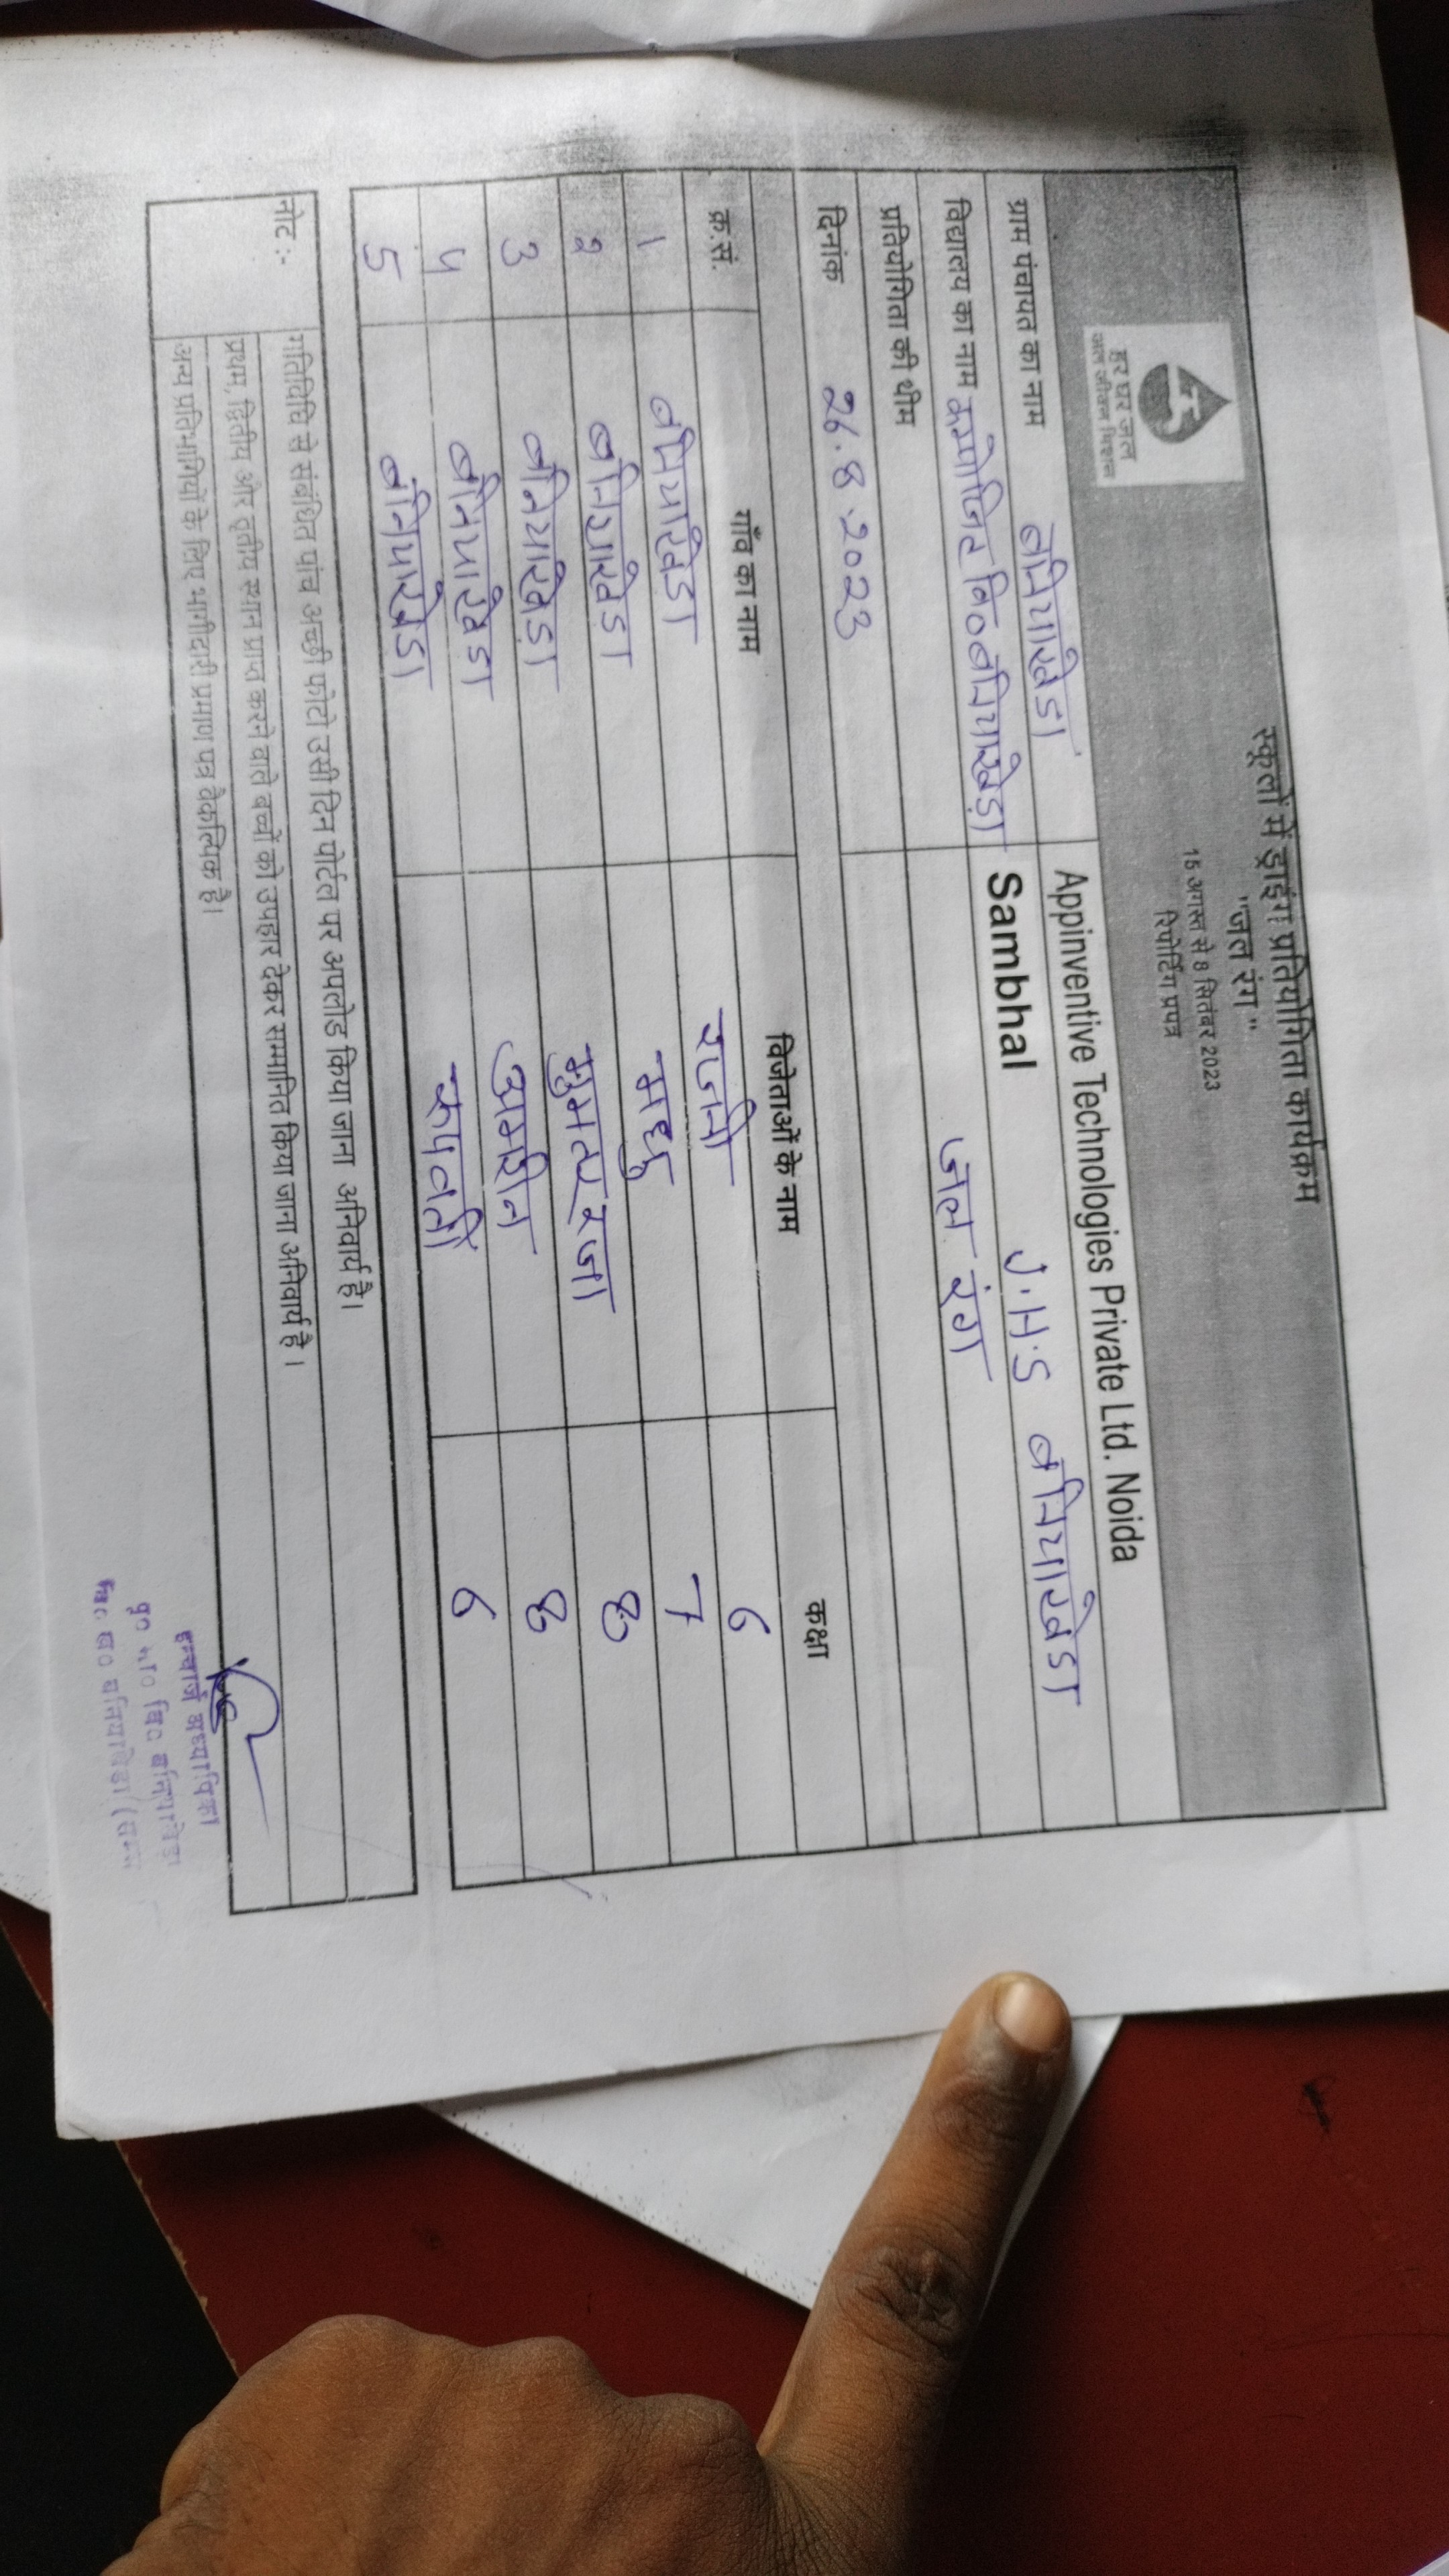 स्कूलों में ड्राइंग प्रतियोगिता कार्यक्रम
"जल रंग"
15 अगस्त से 8 सितंबर 2023
रिपोर्टिंग प्रपत्र
हर घर जल
जल जीवन मिशन
Appinventive Technologies Private Ltd. Noida
ग्राम पंचायत का नाम बनियाखेडा Sambhal J.H.S बनियाखेडा
विद्यालय का नाम कम्पोजिट वि० बनियाखेड़ा जल रंग
प्रतियोगिता की थीम
दिनांक 26.8.2023
क्र.सं. गाँव का नाम विजेताओं के नाम कक्षा
1 बनियाखेडा राजनी 6
2 बनियाखेडा माधु 7
3 बनियाखेडा रजा 8
4 बनियाखेडा अमरीन 8
5 बनियाखेडा रूपवती 6
नोट :- गतिविधि से संबंधित पांच अच्छी फोटो उसी दिन पोर्टल पर अपलोड किया जाना अनिवार्य है।
प्रथम, द्वितीय और तृतीय स्थान प्राप्त करने वाले बच्चों को उपहार देकर सम्मानित किया जाना अनिवार्य है।
अन्य प्रतिभागियों के लिए भागीदारी प्रमाण पत्र वैकल्पिक है।
इन्चार्ज अध्यापिका
पू० मा० वि० बनियाखेडा
वि० ख० बनियाखेडा